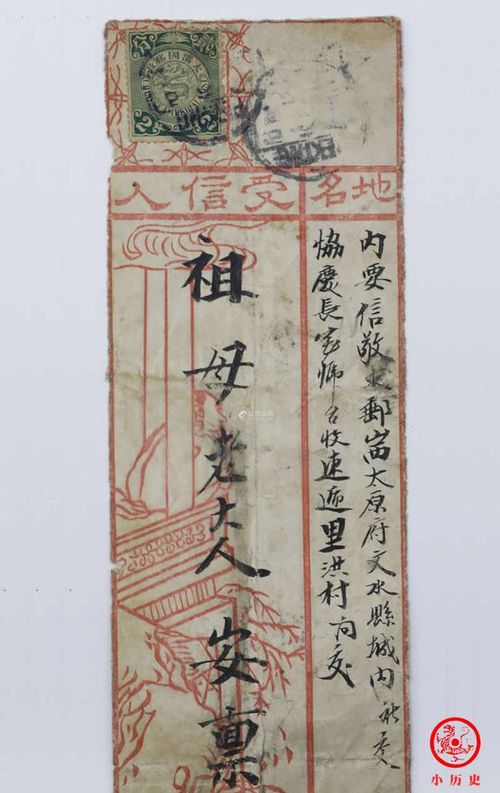 大清國郵政
2 2
地名
受信人
内要信敬郵太原府文水縣城内交
協慶長师台收速遞里洪村向交
祖母老大人安禀
小历史